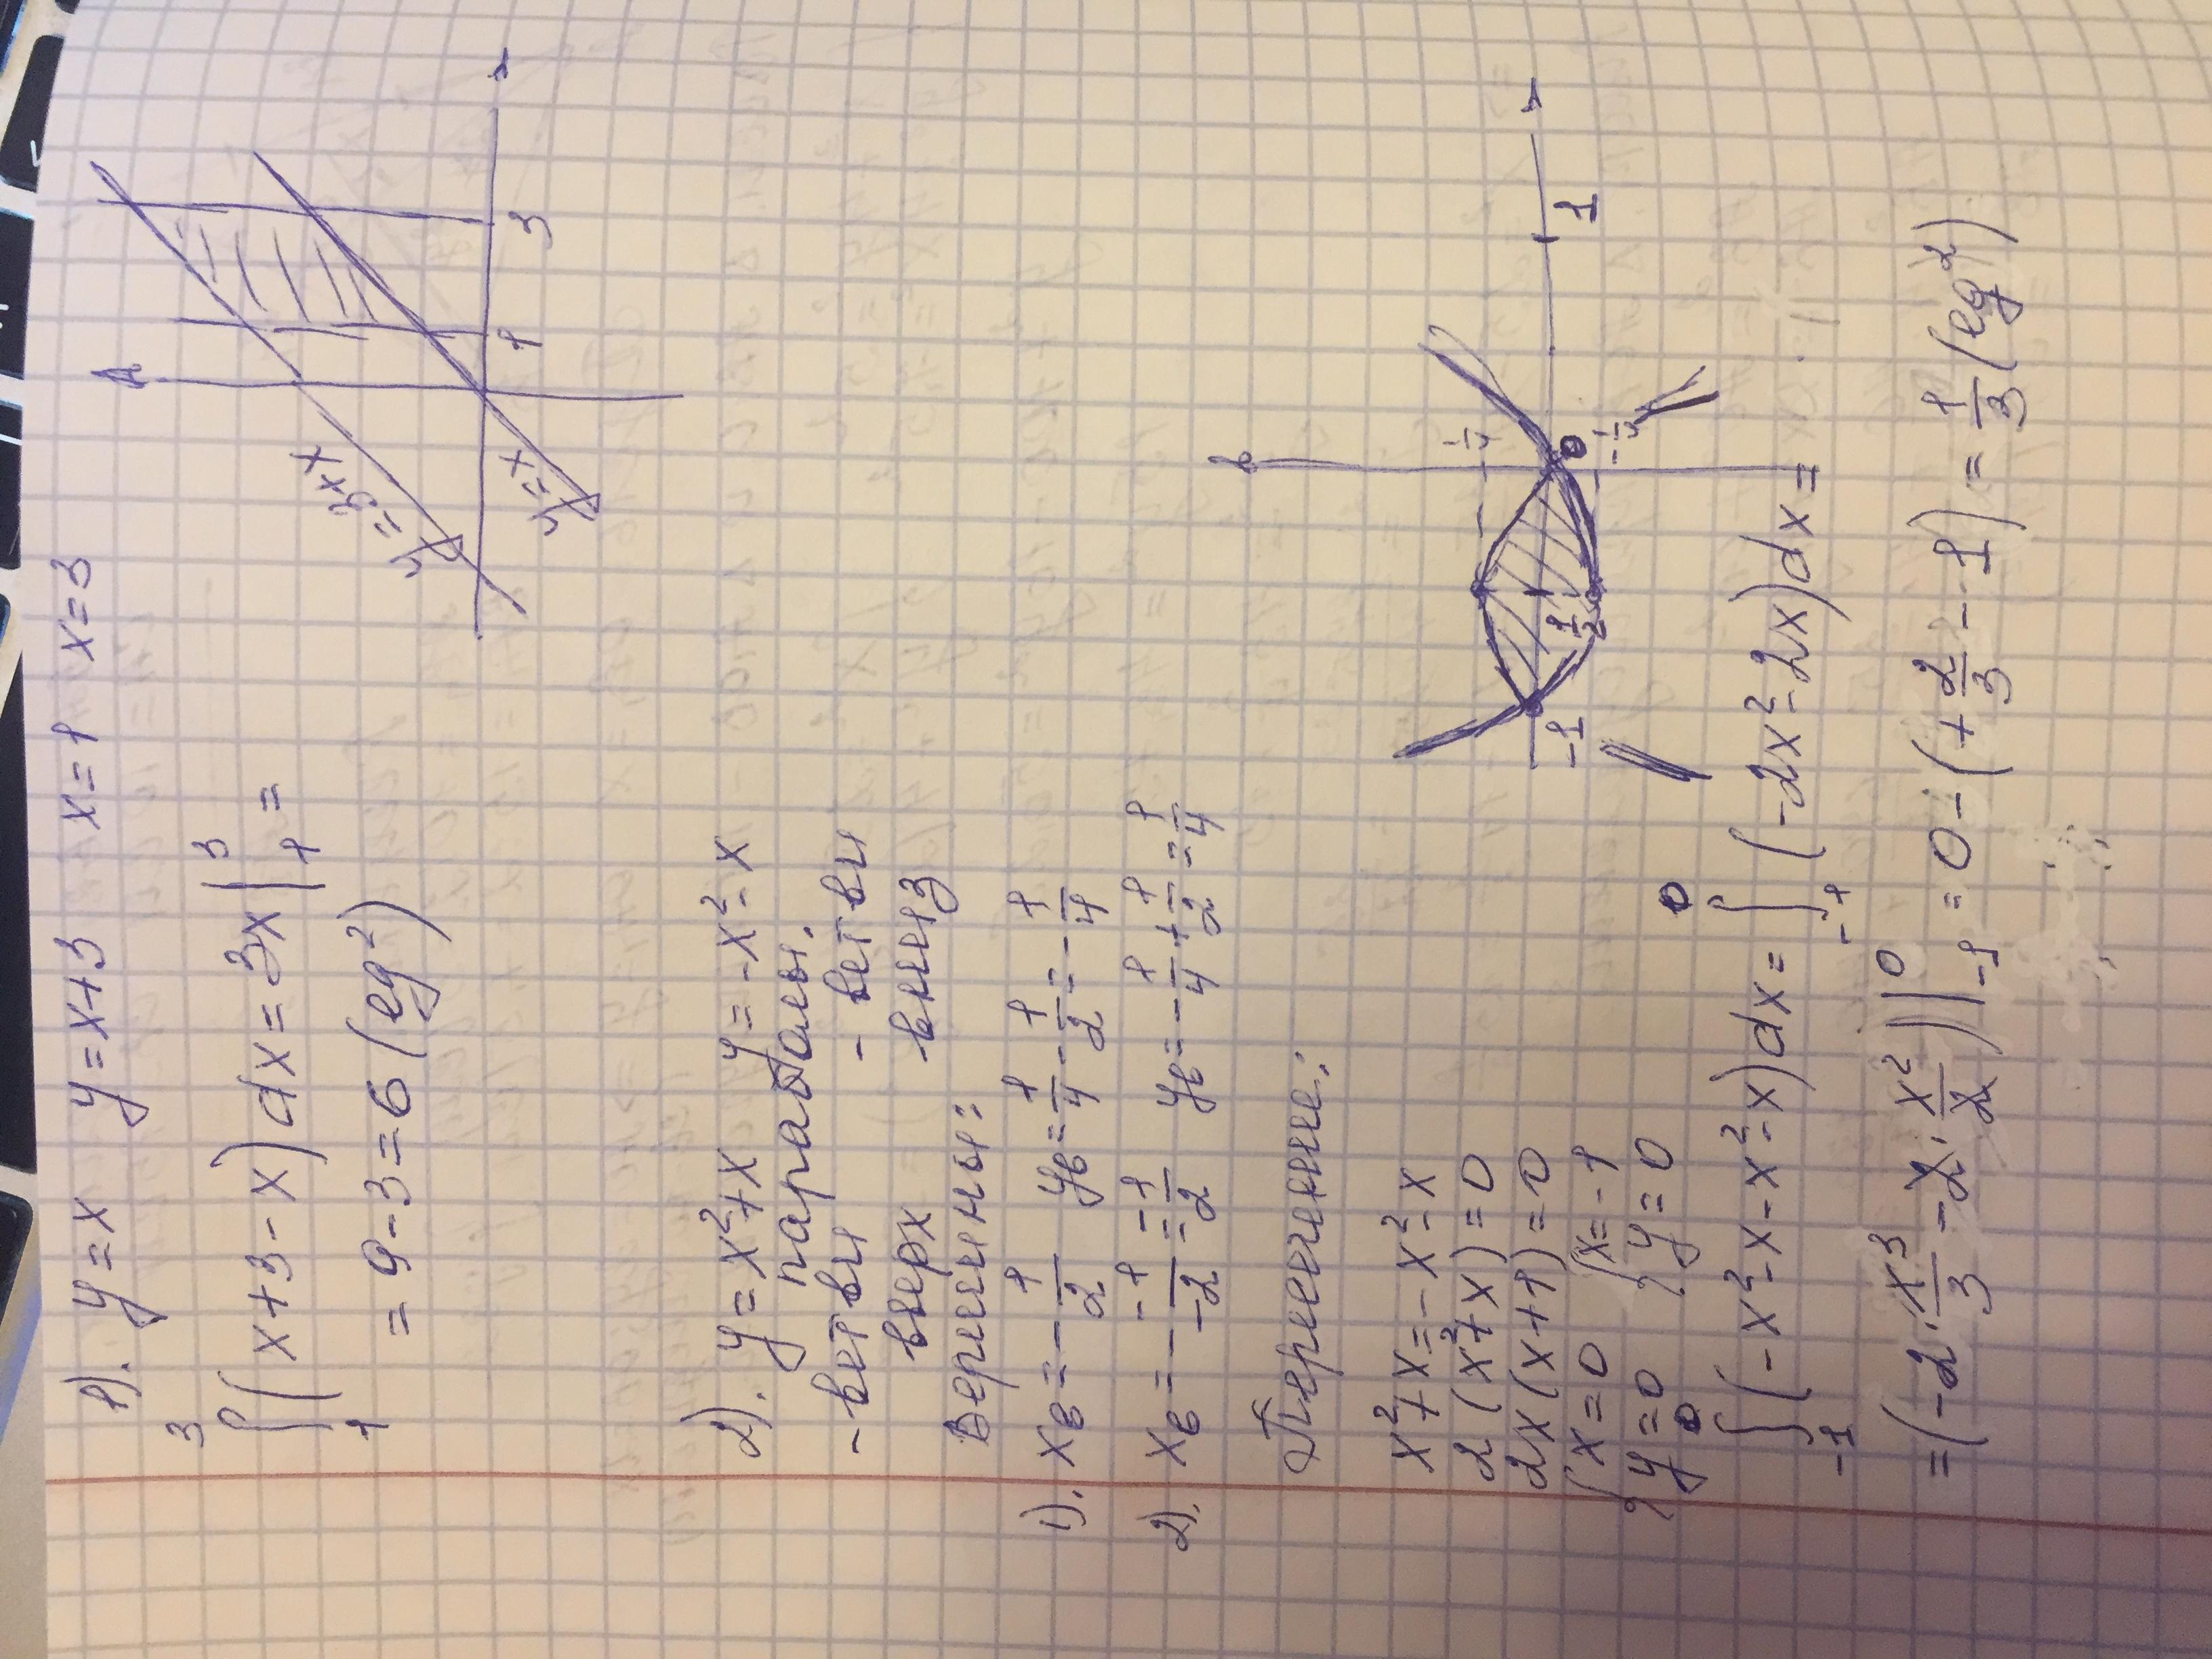 1). y = x y = x+3 x = 1 x = 3
3
∫ (x+3-x)dx = 3x |³₁ =
1
= 9-3 = 6 (ед²)
y = 3+x
y = x
1 3
2). y = x²+x y = -x²-x
параболы.
- ветви вверх - ветви вниз
Вершины:
1). xв = -1/2 yв = 1/4 - 1/2 = -1/4
2). xв = - -1/-2 = -1/2 yв = -1/4 + 1/2 = 1/4
Пересечение:
x²+x = -x²-x
2(x²+x) = 0
2x(x+1) = 0
{x = 0 {x = -1
{y = 0 ; {y = 0
1/4
-1 1/2 0 1
-1/4
0 0
∫ (-x²-x-x²-x)dx = ∫ (-2x²-2x)dx =
-1 -1
= (-2·x³/3 - 2·x²/2) |⁰₋₁ = 0-(+2/3 - 1) = 1/3 (ед²)